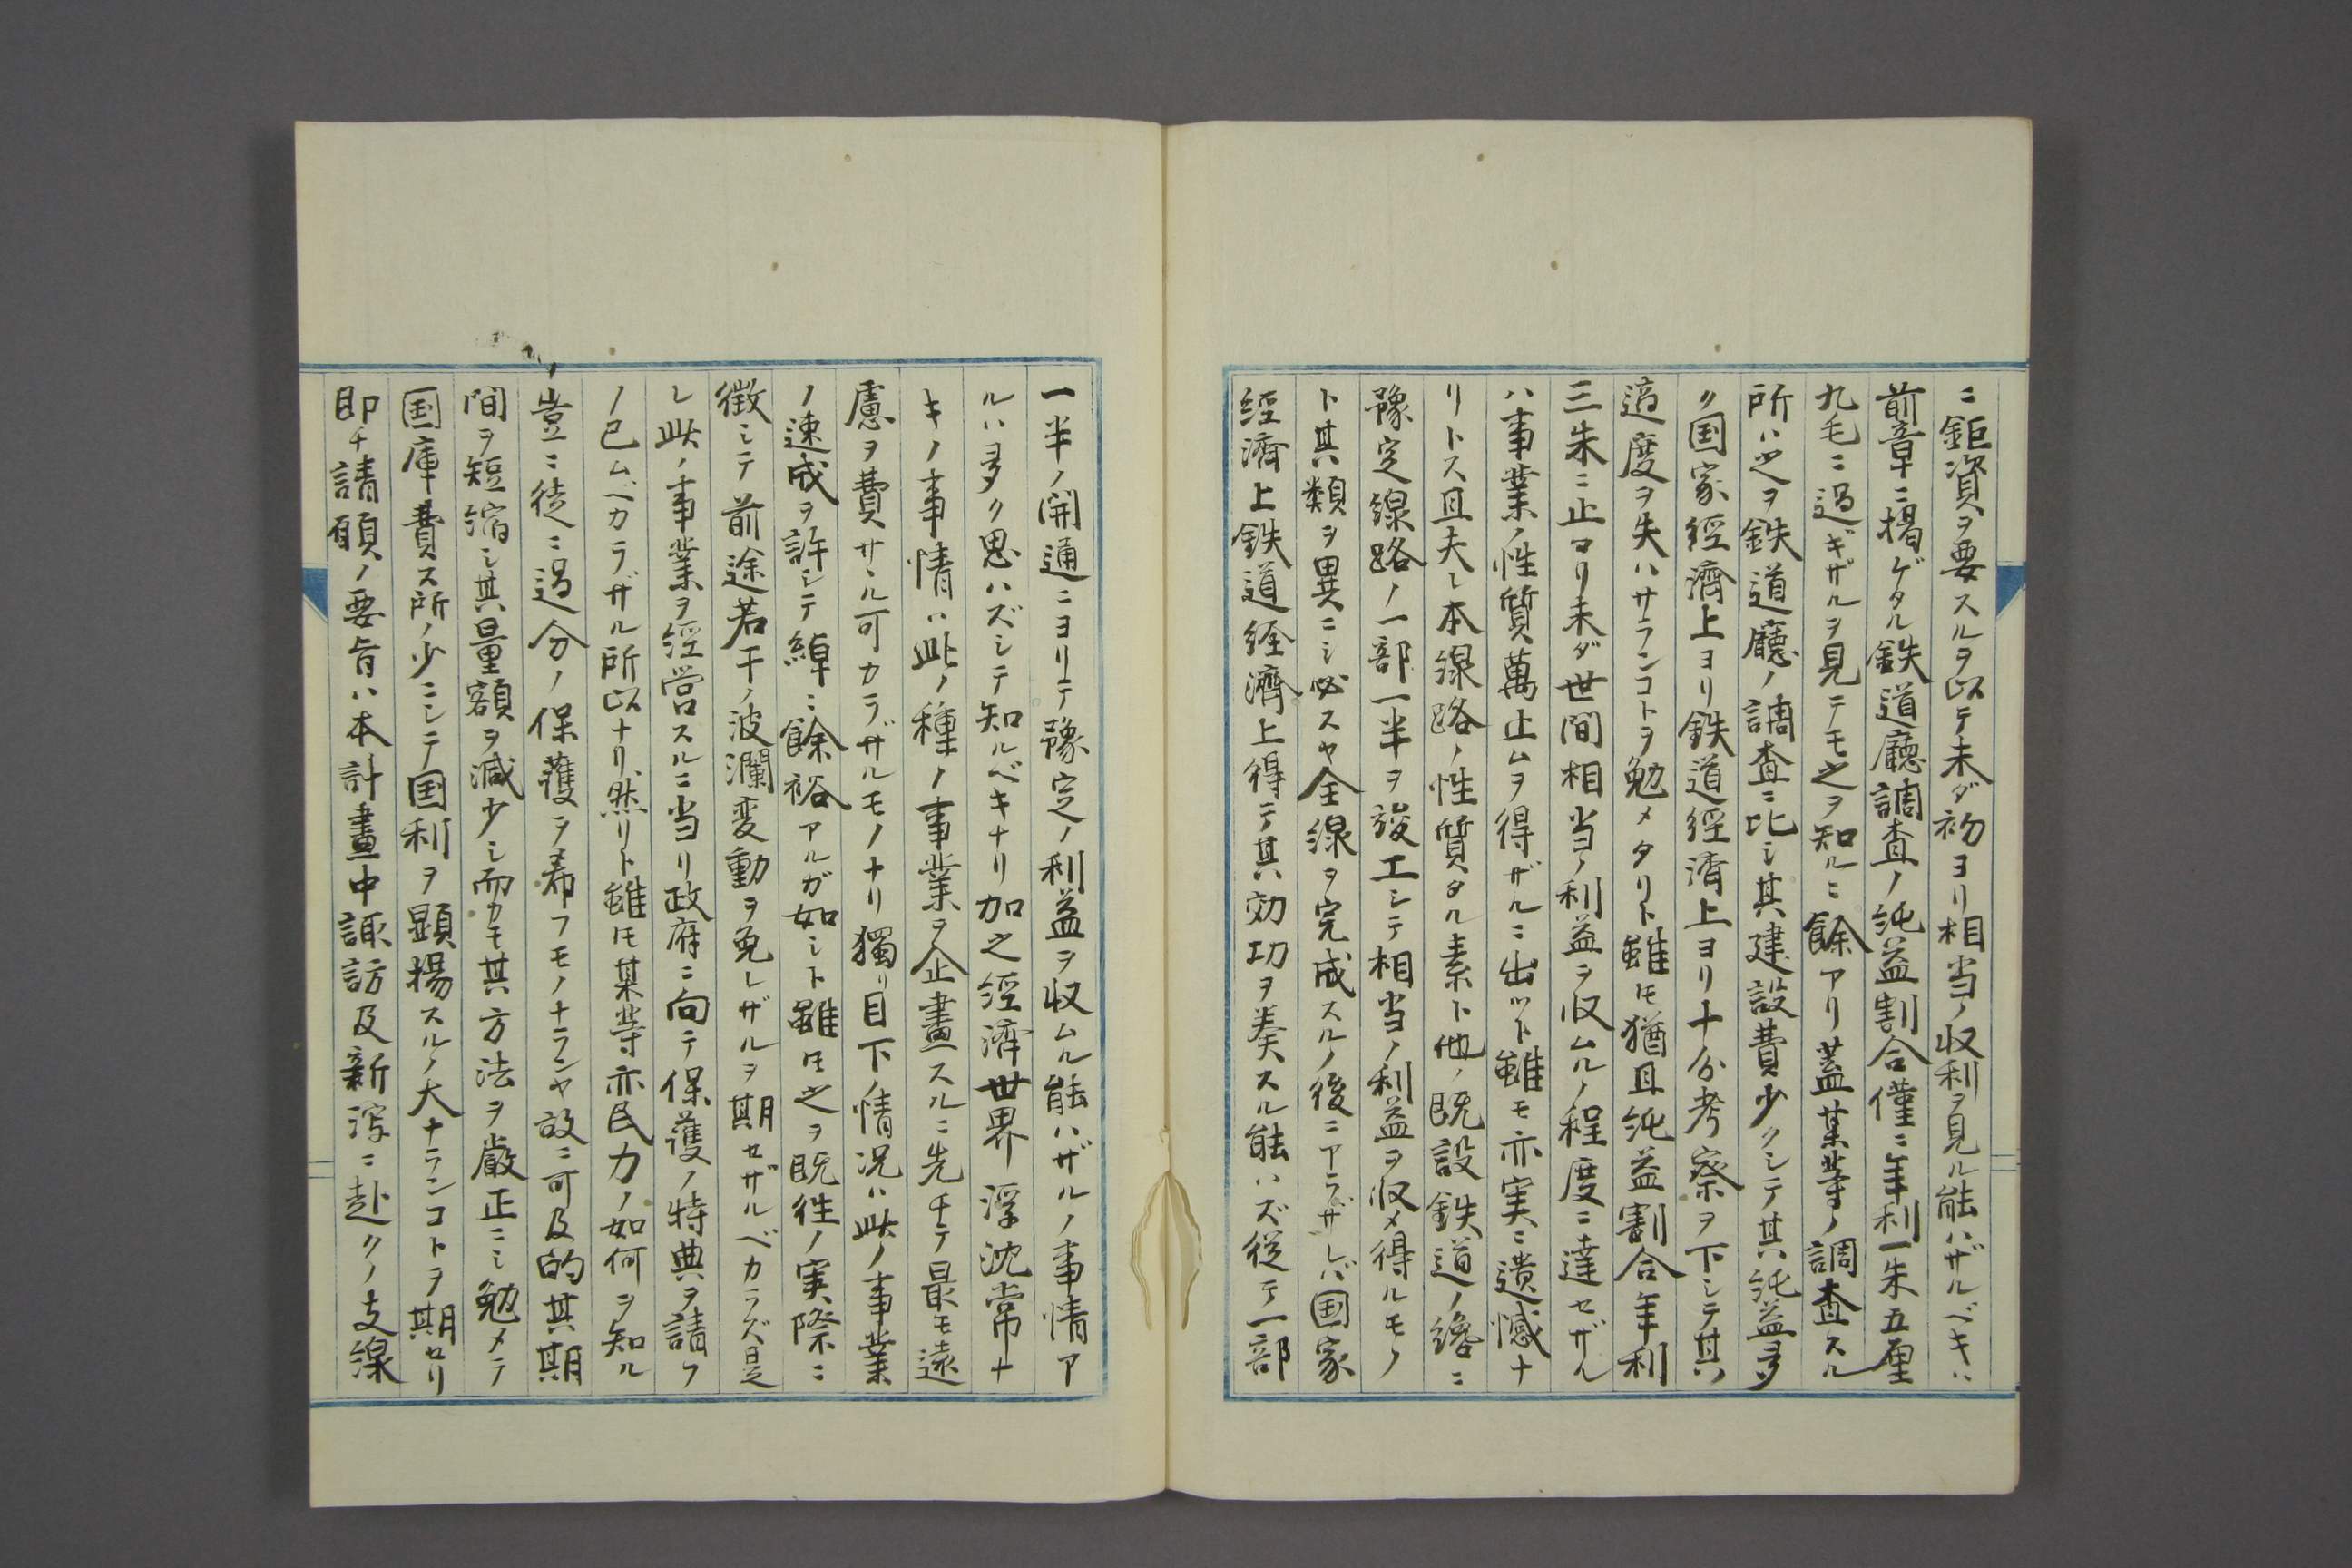 ニ鉅資ヲ要スルヲ以テ未ダ初ヨリ相当ノ収利ヲ見ル能ハザルベキハ
前章ニ掲ゲタル鉄道廳調査ノ純益割合僅ニ年利一朱五厘
九毛ニ過ギザルヲ見テモ之ヲ知ルニ餘アリ蓋某等ノ調査スル
所ハ之ヲ鉄道廳ノ調査ニ比シ其建設費少クシテ其純益多
ク国家経濟上ヨリ鉄道経濟上ヨリ十分考察ヲ下シテ其
適度ヲ失ハサランコトヲ勉メタリト雖モ猶且純益割合年利
三朱ニ止マリ未ダ世間相当ノ利益ヲ収ムルノ程度ニ達セザル
ハ事業ノ性質萬止ムヲ得ザルニ出ツト雖モ亦実ニ遺憾ナ
リトス且夫レ本線路ノ性質タル素ト他ノ既設鉄道ノ纔ニ
豫定線路ノ一部一半ヲ竣工シテ相当ノ利益ヲ収メ得ルモノ
ト其類ヲ異ニシ必スヤ全線ヲ完成スルノ後ニアラザレバ国家
経濟上鉄道経濟上得テ其効功ヲ奏スル能ハズ従テ一部
一半ノ開通ニヨリテ豫定ノ利益ヲ収ムル能ハザルノ事情ア
ルハ多ク思ハズシテ知ルベキナリ加之経濟世界浮沈常ナ
キノ事情ハ此ノ種ノ事業ヲ企畫スルニ先チテ最モ遠
慮ヲ費サヾル可カラザルモノナリ獨リ目下ノ情況ハ此ノ事業
ノ速成ヲ許シテ綽ニ餘裕アルガ如シト雖モ之ヲ既往ノ実際ニ
徴シテ前途若干ノ波瀾変動ヲ免レザルヲ期セザルベカラズ是
レ此ノ事業ヲ経営スルニ当リ政府ニ向テ保護ノ特典ヲ請フ
ノ已ムベカラザル所以ナリ然リト雖モ某等亦民力ノ如何ヲ知ル
豈ニ徒ニ過分ノ保護ヲ希フモノナランヤ故ニ可及的其期
間ヲ短縮シ其量額ヲ減少シ而カモ其方法ヲ嚴正ニシ勉メテ
国庫費ス所ノ少ニシテ国利ヲ顕揚スルノ大ナランコトヲ期セリ
即チ請願ノ要旨ハ本計畫中諏訪及新潟ニ赴クノ支線